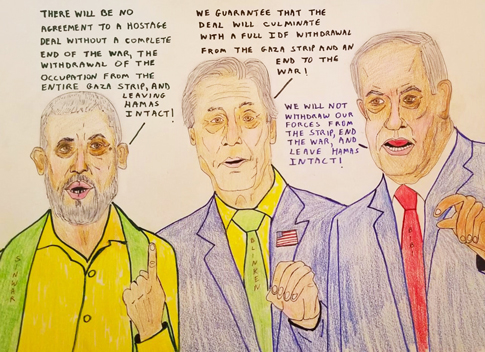 THERE WILL BE NO
AGREEMENT TO A HOSTAGE
DEAL WITHOUT A COMPLETE
END OF THE WAR, THE
WITHDRAWAL OF THE
OCCUPATION FROM THE
ENTIRE GAZA STRIP, AND
LEAVING
HAMAS
INTACT!
WE GUARANTEE THAT THE
DEAL WILL CULMINATE
WITH A FULL IDF WITHDRAWAL
FROM THE GAZA STRIP AND AN
END TO THE
WAR!
WE WILL NOT
WITHDRAW OUR
FORCES FROM
THE STRIP, END
THE WAR, AND
LEAVE HAMAS
INTACT!
SINWAR
BLINKEN